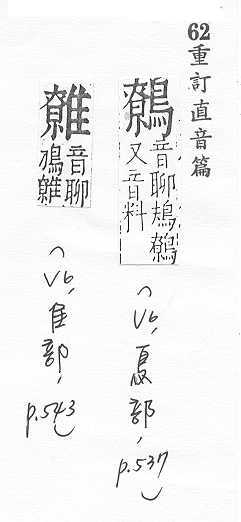 62重訂直音篇
鷯
音聊鳭鷯
又音料
(V6, 鳥部, p.537)
音聊
鳭
(V6, 隹部, p.543)